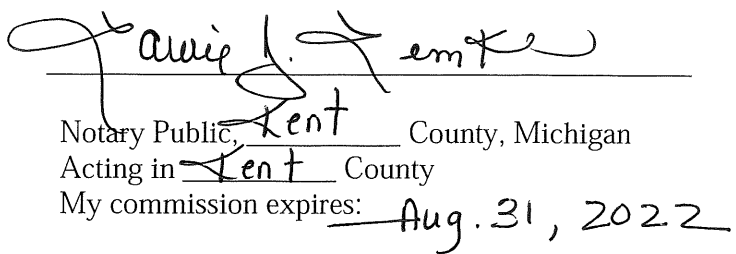 Laurie J. Lemke
Notary Public, Kent County, Michigan
Acting in Kent County
My commission expires: Aug. 31, 2022